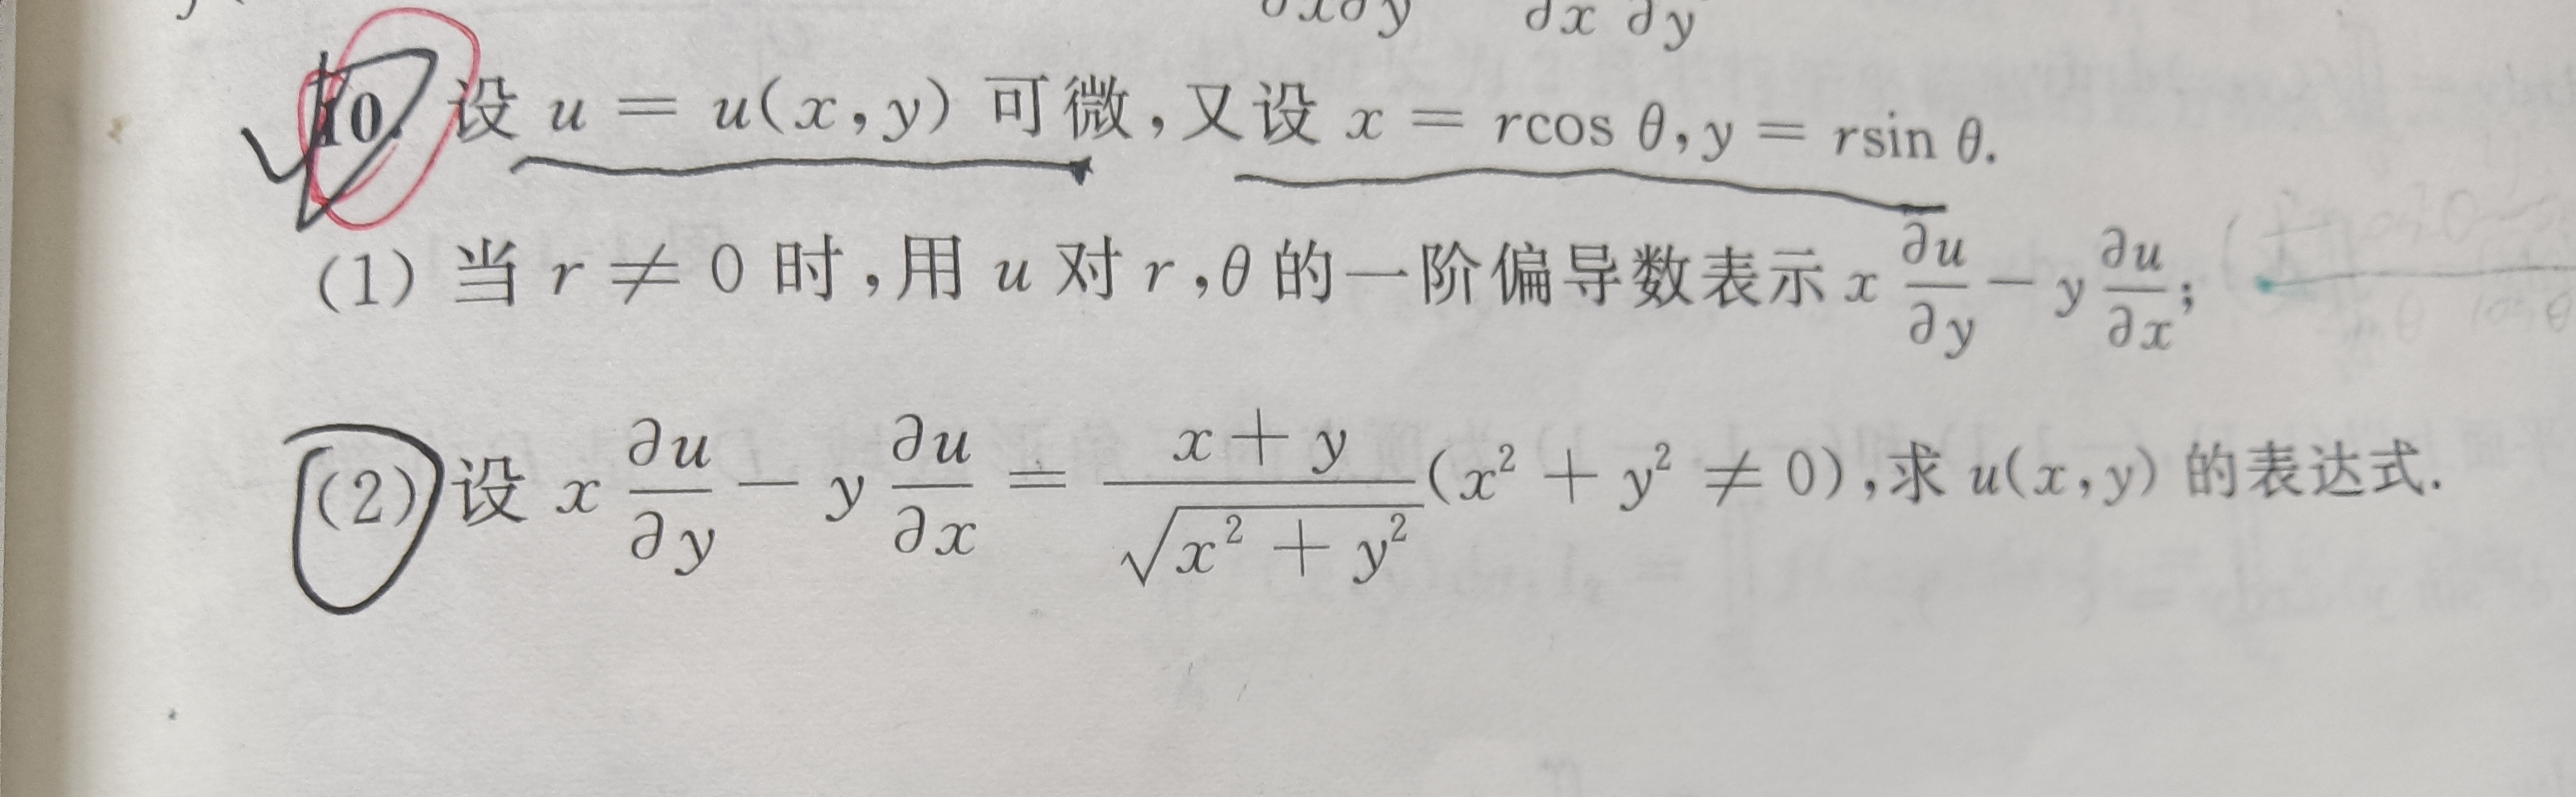 ∂x∂y ∂x ∂y
10. 设 u = u(x,y) 可微,又设 x = rcos θ,y = rsin θ.
(1) 当 r ≠ 0 时,用 u 对 r,θ 的一阶偏导数表示 x ∂u/∂y − y ∂u/∂x;
(2) 设 x ∂u/∂y − y ∂u/∂x = (x + y)/√(x² + y²) (x² + y² ≠ 0),求 u(x,y) 的表达式.